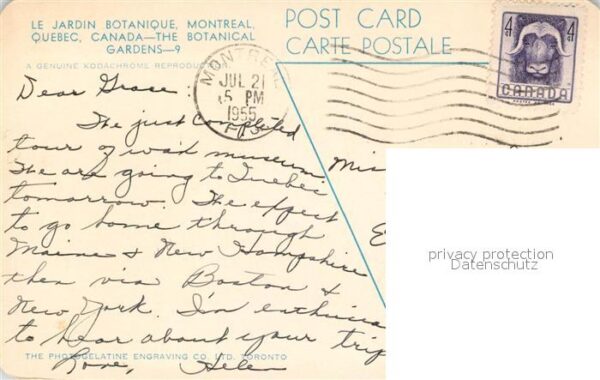 LE JARDIN BOTANIQUE, MONTREAL,
QUEBEC, CANADA—THE BOTANICAL
GARDENS—9
A GENUINE KODACHROME REPRODUCTION
POST CARD
CARTE POSTALE
MONTREAL
JUL 21
5 PM
1955
4
4
CANADA
Dear Grace:
The just completed
tour of wax museum
The are going to Quebec
tomorrow. The expect
to go home through
Maine & New Hampshire
then via Boston &
New York. I'm enthusia
to hear about your trip
Love, Helen
Mis
E
privacy protection
Datenschutz
THE PHOTOGELATINE ENGRAVING CO. LTD. TORONTO